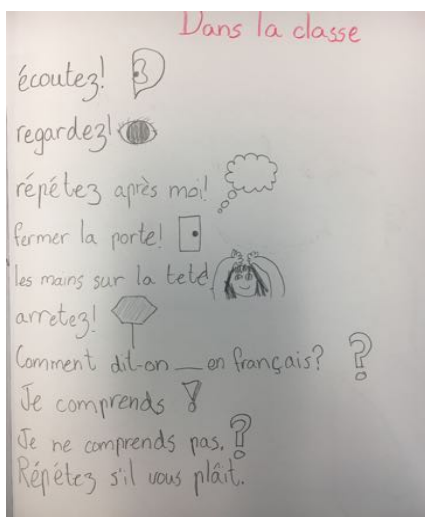 Dans la classe
écoutez!
regardez!
répétez après moi!
fermer la porte!
les mains sur la teté
arretez!
Comment dit-on __ en français? ?
Je comprends !
Je ne comprends pas. ?
Répétez s'il vous plaît.